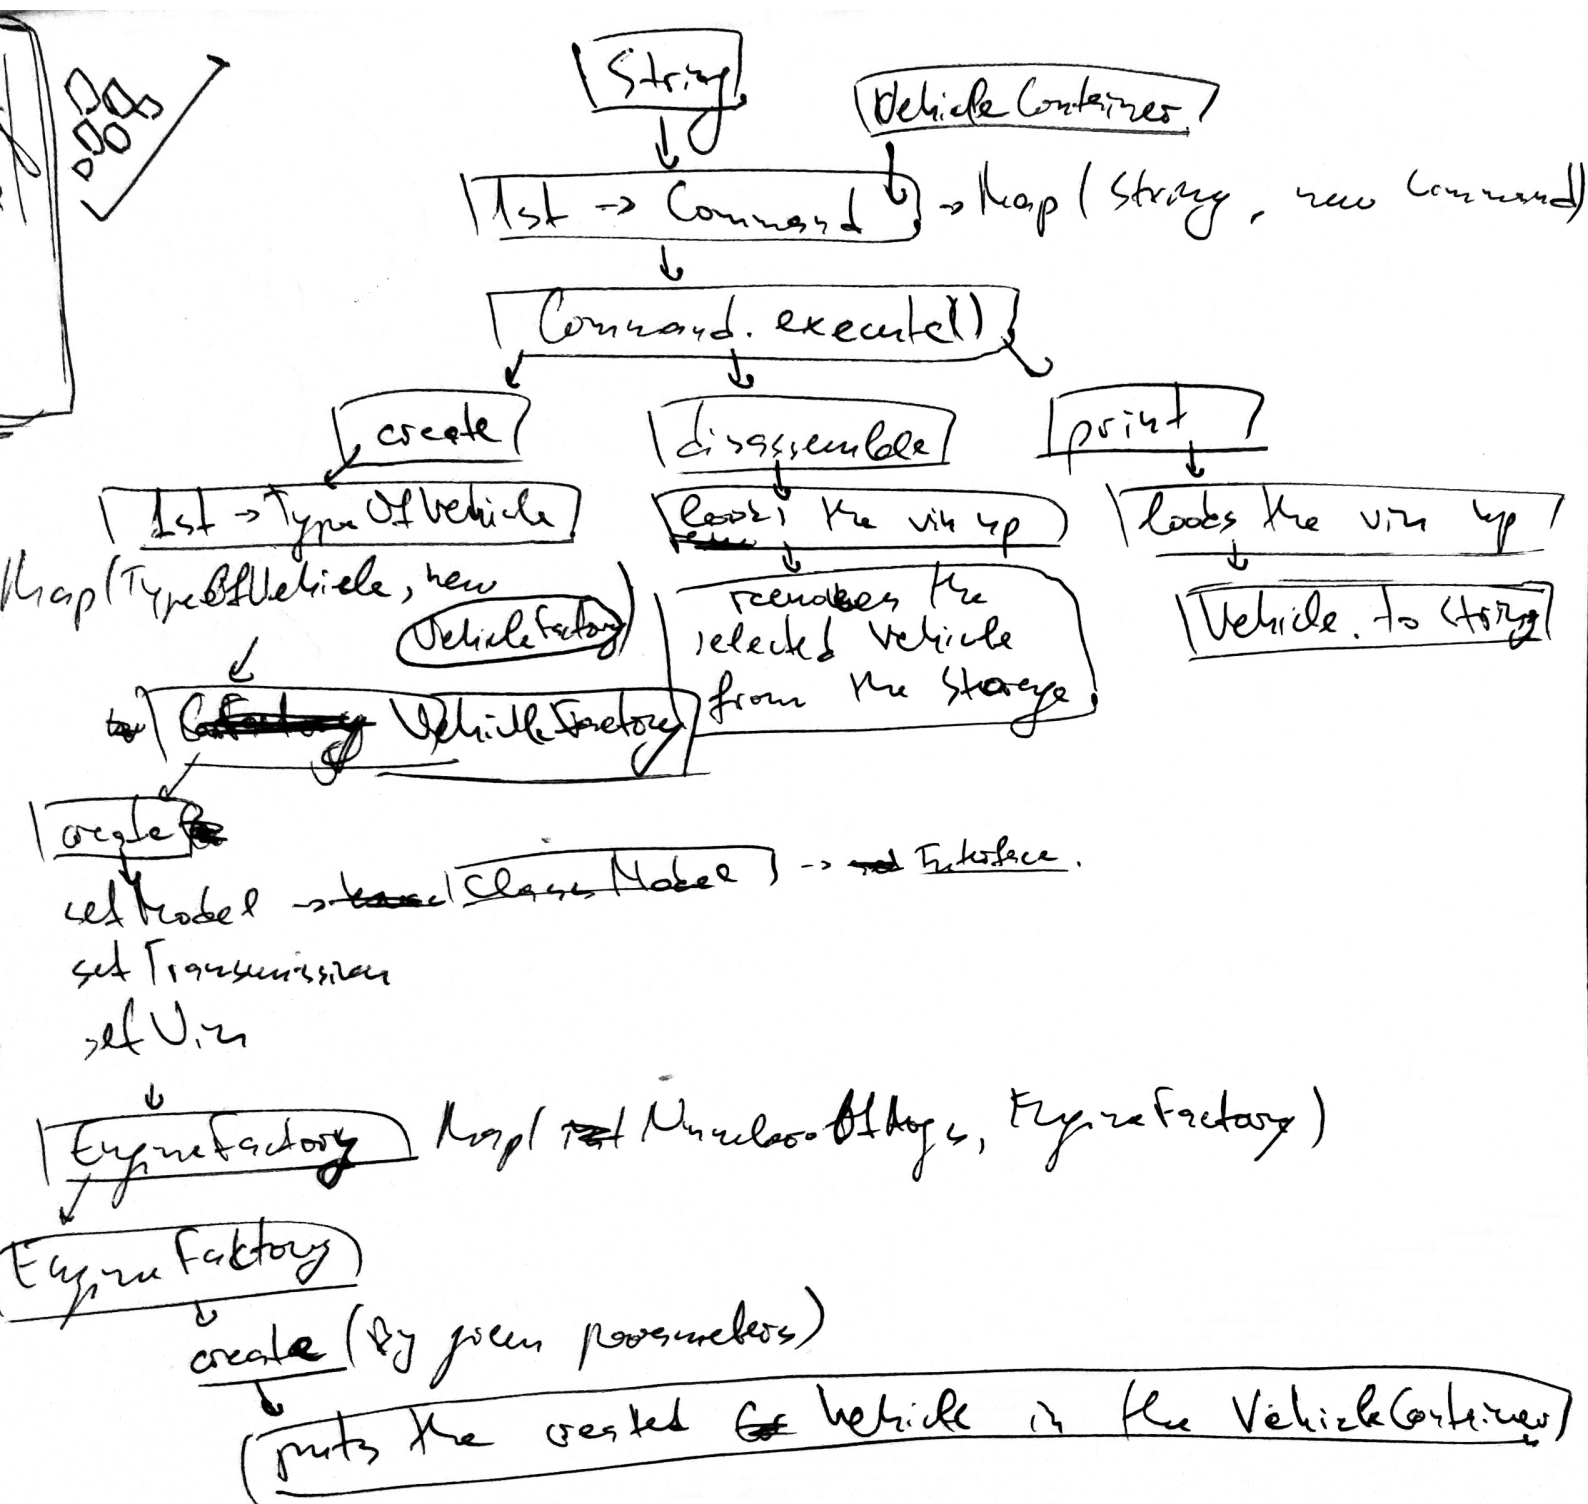 String
VehicleContainer
1st -> Command -> Map (String, new Command)
Command.execute()
create
disassemble
print
1st -> TypeOfVehicle
looks the vin up
looks the vin up
Map(TypeOfVehicle, new
VehicleFactory)
removes the
selected vehicle
from the storage
Vehicle.toString
VehicleFactory
create
setModel -> Class Model -> Interface.
setTransmission
setVin
EngineFactory Map( NumberOfArgs, EngineFactory)
EngineFaktory
create (By given parameters)
puts the created Vehicle in the VehicleContainer